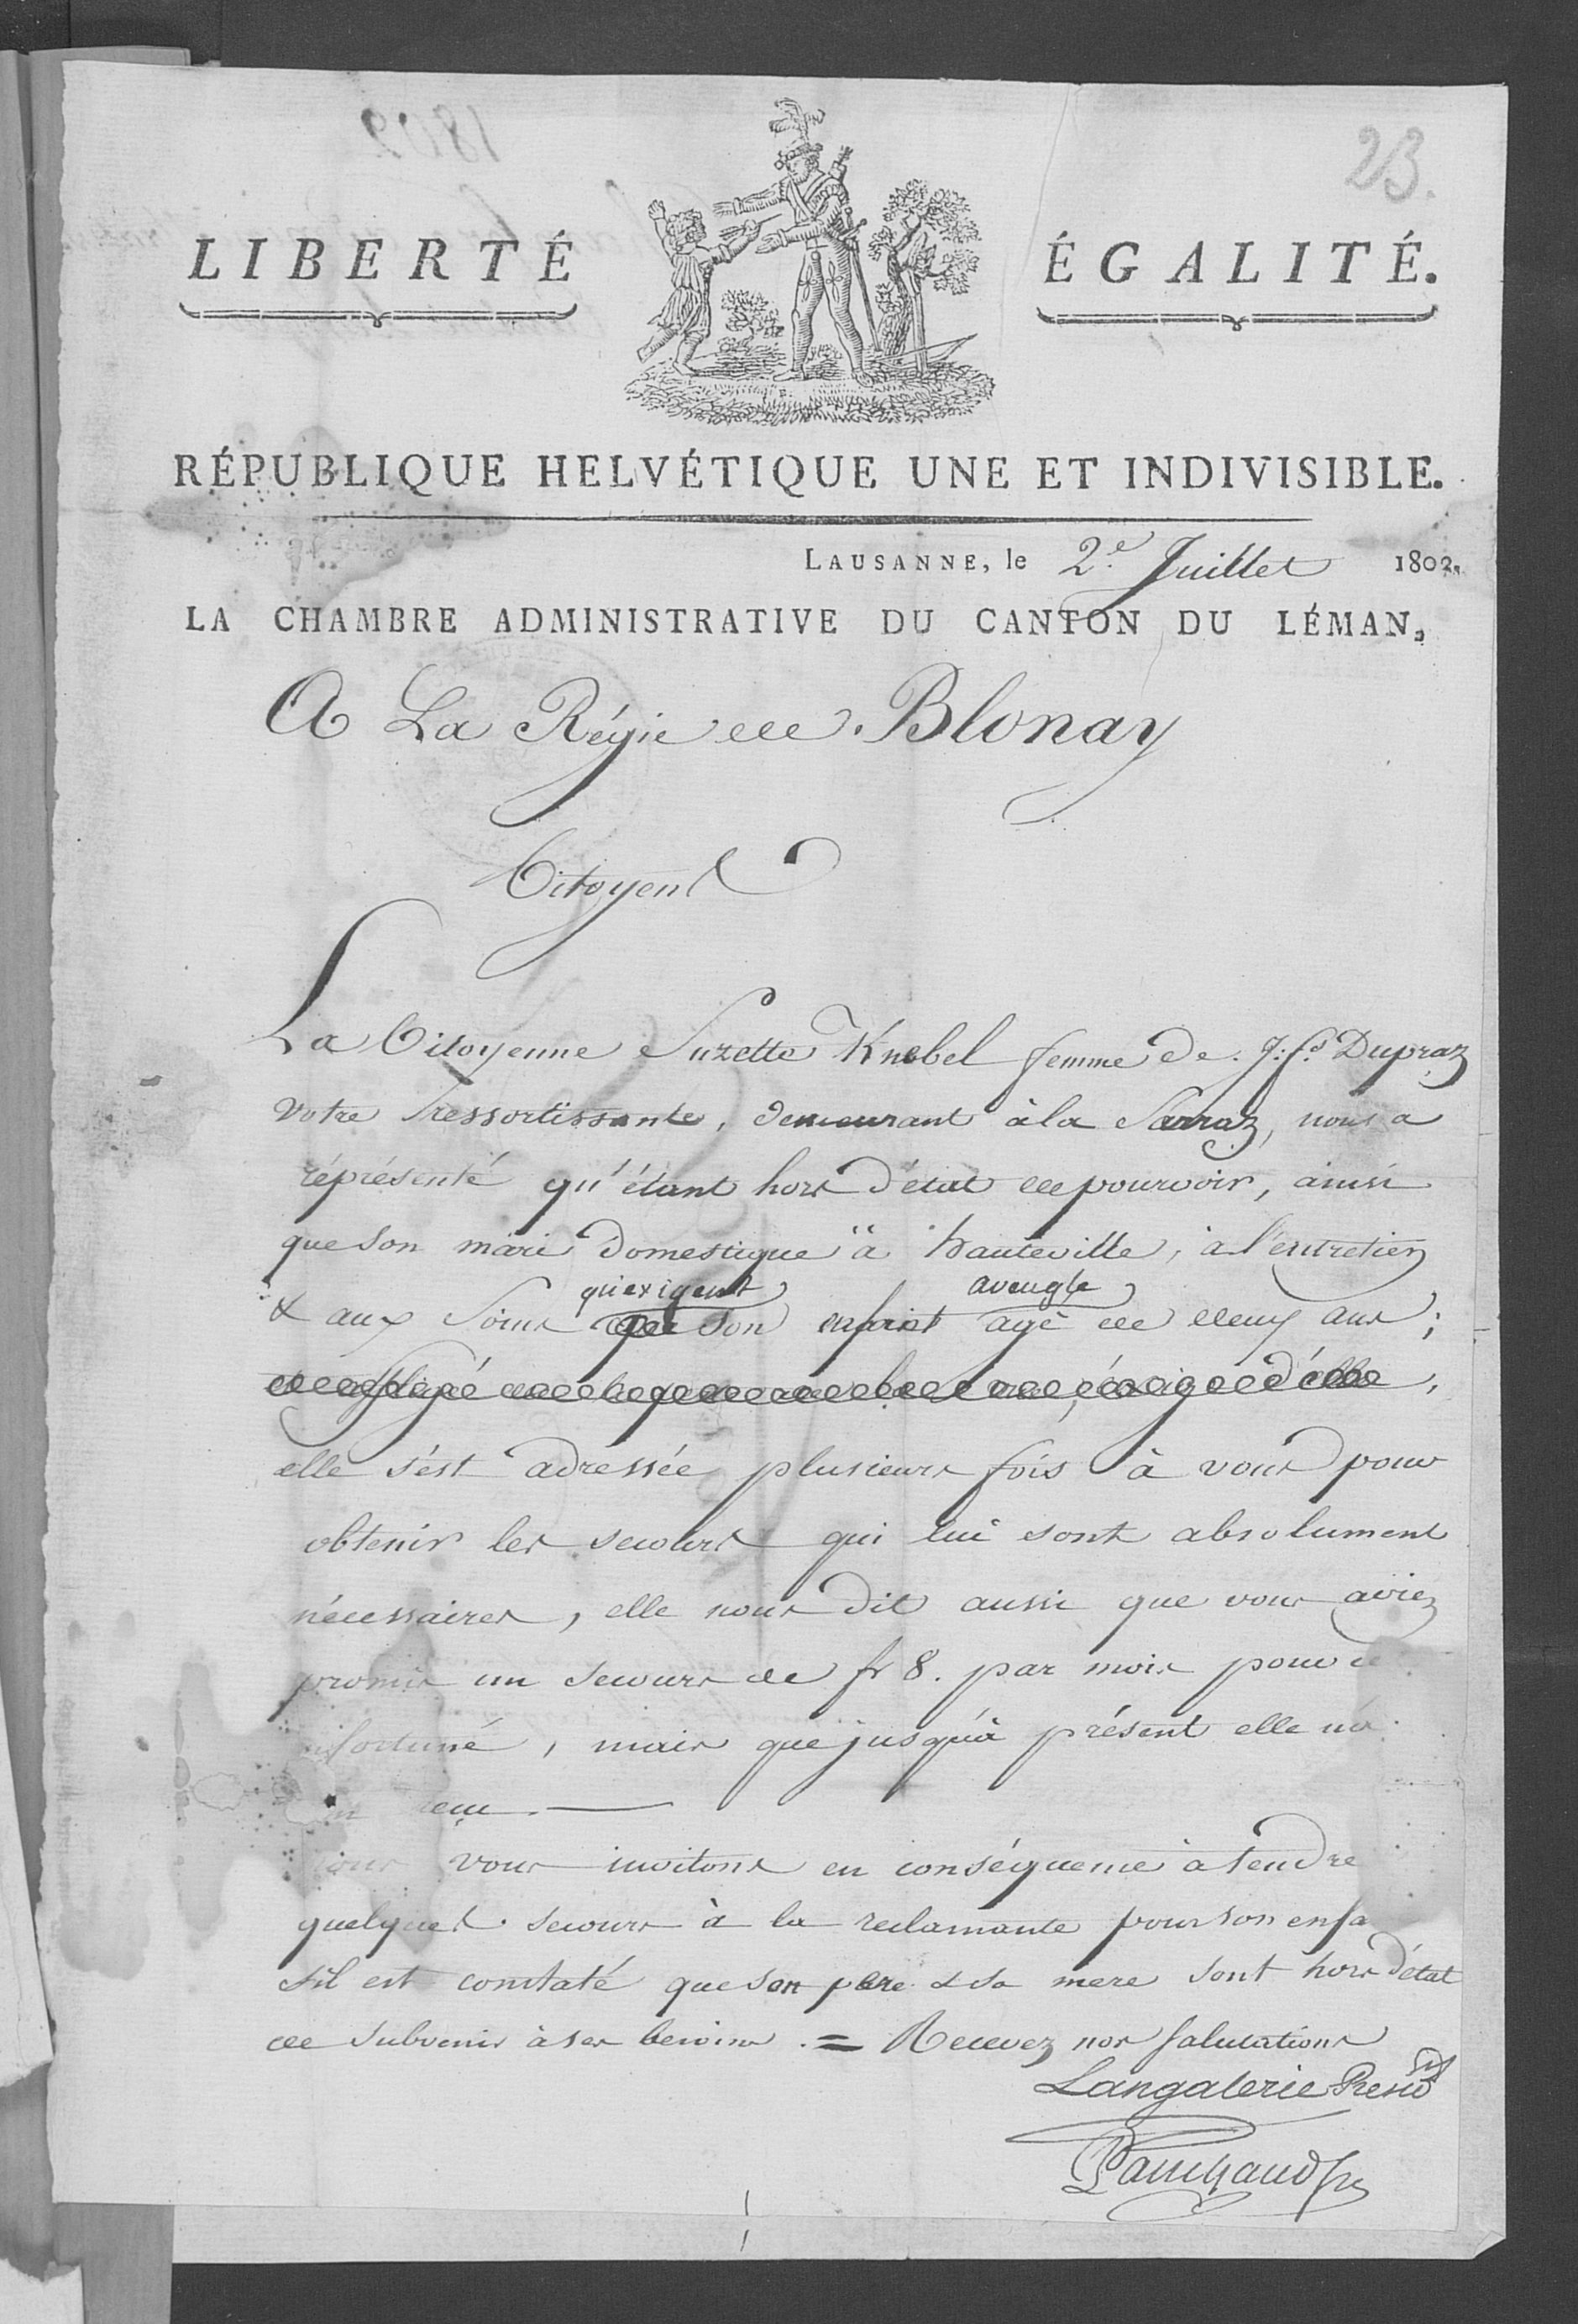 23.
LIBERTÉ ÉGALITÉ.
RÉPUBLIQUE HELVÉTIQUE UNE ET INDIVISIBLE.
LAUSANNE, le 2.e Juillet 1802.
LA CHAMBRE ADMINISTRATIVE DU CANTON DU LÉMAN,
A La Régie de Blonay
Citoyens
La Citoyenne Suzette Knebel femme de J: fs Dupraz
votre ressortissante, demeurant à la Sarraz, nous a
réprésenté qu'étant hors d'état de pourvoir, ainsi
que son mari domestique à hauteville, à l'entretien
qu'exigent aveugle
& aux soins son enfant agé de deux ans;
elle s'est adressée plusieurs fois à vous pour
obtenir les secours qui lui sont absolument
nécessaires, elle nous dit aussi que vous aviez
promis un secours de fr 8. par mois pour ce
fortuné, mais que jusqu'à présent elle n'a
n reçu.
nous vous invitons en conséquence à tendre
quelques secours à la reclamante pour son enfa
s'il est constaté que son père & sa mere sont hors d'état
de subvenir à ses besoins. = Recevez nos salutations
Langalerie Presid
Panchaud